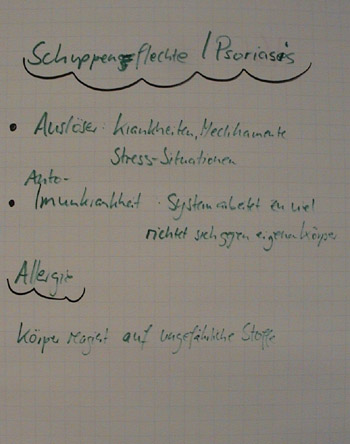 Schuppenflechte / Psoriasis
• Auslöser: Krankheiten, Medikamente
Stress-Situationen
Auto-
• Imunkrankheit : System arbeitet zu viel
richtet sich gegen eigenen Körper
Allergie
Körper reagiert auf ungefährliche Stoffe